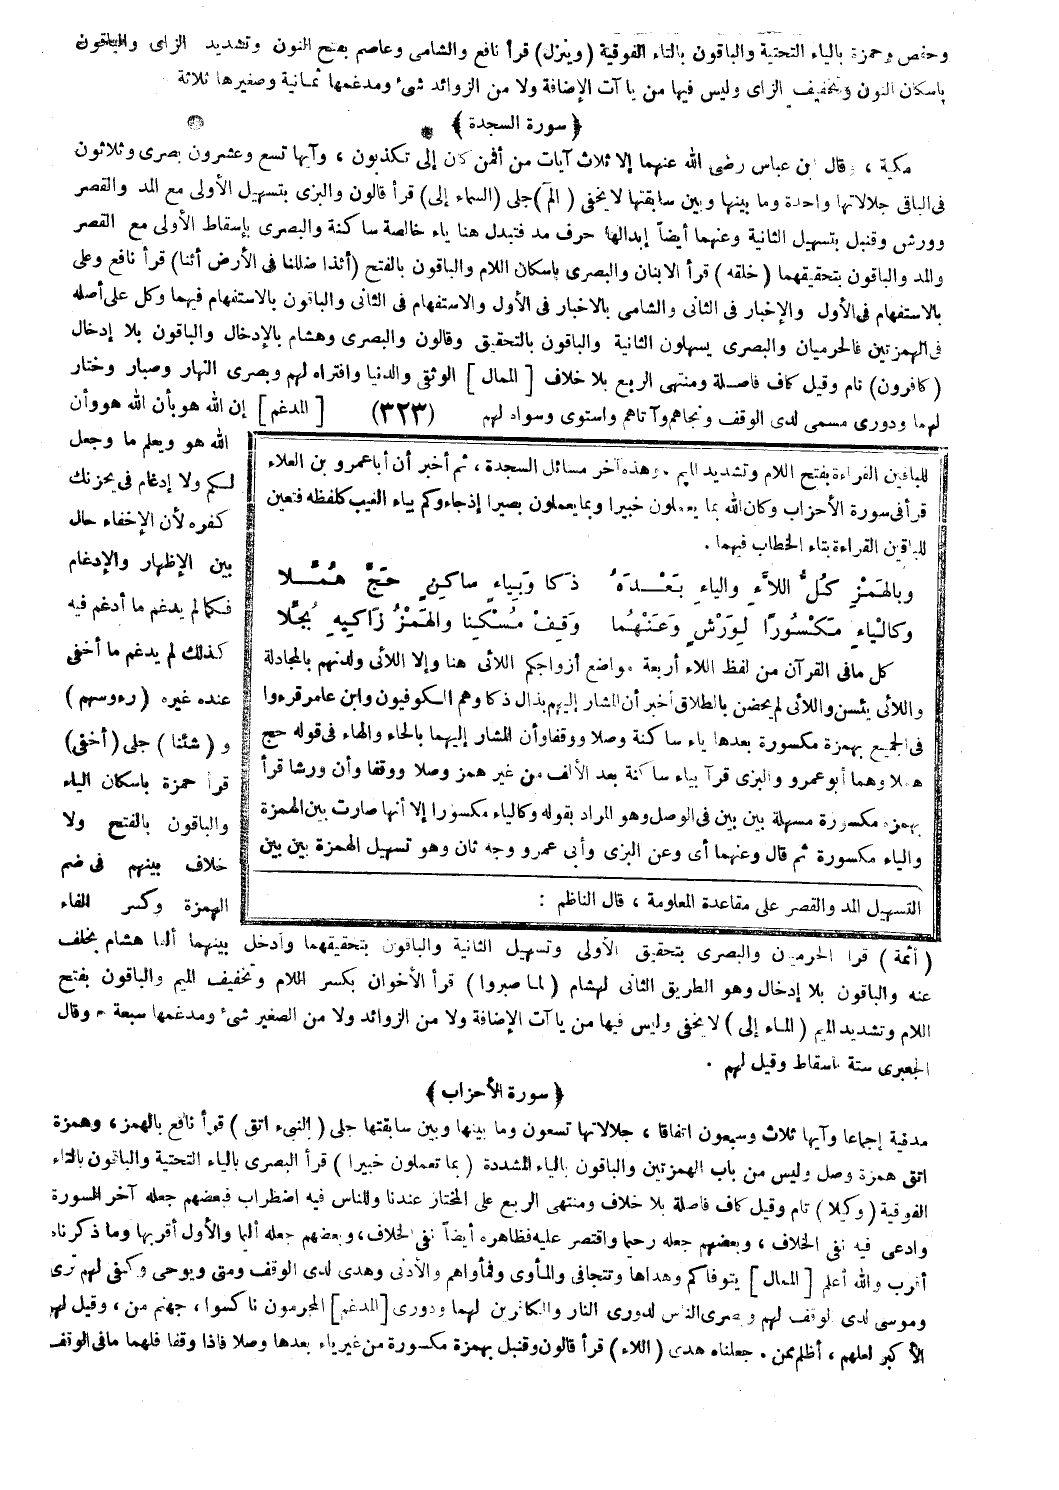 وحفص وحمزة بالياء التحتية والباقون بالتاء الفوقية (وينزل) قرأ نافع والشامى وعاصم بفتح النون وتشديد الزاى والباقون
باسكان النون وتخفيف الزاى وليس فيها من يا آت الإضافة ولا من الزوائد شىء ومدغمها ثمانية وصغيرها ثلاثة
﴿ سورة السجدة ﴾
مكية ، وقال ابن عباس رضى الله عنهما إلا ثلاث آيات من أفمن كان إلى تكذبون ، وآيها تسع وعشرون بصرى وثلاثون
فى الباقى جلالاتها واحدة وما بينها وبين سابقتها لا يخفى ( الم ) جلى (السماء إلى) قرأ قالون والبزى بتسهيل الأولى مع المد والقصر
وورش وقنبل بتسهيل الثانية وعنهما أيضاً إبدالها حرف مد فتبدل هنا ياء خالصة ساكنة والبصرى بإسقاط الأولى مع القصر
والمد والباقون بتحقيقهما ( خلقه ) قرأ الابنان والبصرى باسكان اللام والباقون بالفتح (أئذا ضللنا فى الأرض أئنا) قرأ نافع وعلى
بالاستفهام فى الأول والإخبار فى الثانى والشامى بالاخبار فى الأول والاستفهام فى الثانى والباقون بالاستفهام فيهما وكل على أصله
فى الهمزتين فالحرميان والبصرى يسهلون الثانية والباقون بالتحقيق وقالون والبصرى وهشام بالإدخال والباقون بلا إدخال
( كافرون) تام وقيل كاف فاصلة ومنتهى الربع بلا خلاف [ الممال ] الوثقى والدنيا وافتراه لهم وبصرى النهار وصبار وختار
لهما ودورى مسمى لدى الوقف ونجاهم وآتاهم واستوى وسواه لهم (٣٢٣) [ المدغم ] إن الله هو بأن الله هو وأن
الله هو ويعلم ما وجعل
لكم ولا إدغام فى يحزنك
كفره لأن الإخفاء حال
بين الإظهار والإدغام
فكما لم يدغم ما أدغم فيه
كذلك لم يدغم ما أخفى
عنده غيره ( رءوسهم )
و ( شئنا ) جلى (أخفى)
قرأ حمزة باسكان الياء
والباقون بالفتح ولا
خلاف بينهم فى ضم
الهمزة وكسر الفاء
للباقين القراءة بفتح اللام وتشديد الميم . وهذه آخر مسائل السجدة ، ثم أخبر أن أبا عمرو بن العلاء
قرأ فى سورة الأحزاب وكان الله بما يعملون خبيرا وبما يعملون بصيرا إذ جاءوكم بياء الغيب كلفظه فتعين
للباقين القراءة بتاء الخطاب فيهما .
وبالهَمْزِ كُلُّ اللاَّءِ والياءِ بَعْدَهُ ذَكا وَبِياءٍ ساكِنٍ حَجَّ هُمَّلا
وكالياءِ مَكْسُورًا لِوَرْشٍ وَعَنْهُما وَقِفْ مُسْكِنا والهَمْزُ زَاكِيهِ بُجِّلا
كل ما فى القرآن من لفظ اللاء أربعة مواضع أزواجكم اللائى هنا وإلا اللائى ولدنهم بالمجادلة
واللائى يئسن واللائى لم يحضن بالطلاق أخبر أن المشار إليهم بذال ذكا وهم الكوفيون وابن عامر قرءوا
فى الجميع بهمزة مكسورة بعدها ياء ساكنة وصلا ووقفا وأن المشار إليهما بالحاء والهاء فى قوله حج
هملا وهما أبو عمرو والبزى قرآ بياء ساكنة بعد الألف من غير همز وصلا ووقفا وأن ورشا قرأ
بهمزة مكسورة مسهلة بين بين فى الوصل وهو المراد بقوله وكالياء مكسورا إلا أنها صارت بين الهمزة
والياء مكسورة ثم قال وعنهما أى وعن البزى وأبى عمرو وجه ثان وهو تسهيل الهمزة بين بين
التسهيل المد والقصر على مقاعدة المعلومة ، قال الناظم :
( أئمة ) قرا الحرميون والبصرى بتحقيق الأولى وتسهيل الثانية والباقون بتحقيقهما وأدخل بينهما ألفا هشام بخلف
عنه والباقون بلا إدخال وهو الطريق الثانى لهشام ( لما صبروا ) قرأ الأخوان بكسر اللام وتخفيف الميم والباقون بفتح
اللام وتشديد الميم ( الماء إلى ) لا يخفى وليس فيها من يا آت الإضافة ولا من الزوائد ولا من الصغير شىء ومدغمها سبعة ، وقال
الجعبرى ستة بأسقاط وقيل لهم .
﴿ سورة الأحزاب ﴾
مدنية إجماعا وآيها ثلاث وسبعون اتفاقا ، جلالاتها تسعون وما بينها وبين سابقتها جلى ( النبىء اتق ) قرأ نافع بالهمز ، وهمزة
اتق همزة وصل وليس من باب الهمزتين والباقون بالياء المشددة ( بما تعملون خبيرا ) قرأ البصرى بالياء التحتية والباقون بالتاء
الفوقية ( وكيلا ) تام وقيل كاف فاصلة بلا خلاف ومنتهى الربع على المختار عندنا وللناس فيه اضطراب فبعضهم جعله آخر السورة
وادعى فيه نفى الخلاف ، وبعضهم جعله رحيما واقتصر عليه فظاهره أيضاً نفى الخلاف، وبعضهم جعله أليما والأول أقربها وما ذكرناه
أقرب والله أعلم [ الممال ] يتوفاكم وهداها وتتجافى والمأوى وفمأواهم والأدنى وهدى لدى الوقف ومتى ويوحى وكفى لهم ترى
وموسى لدى الوقف لهم وبصرى الناس لدورى النار والكافرين لهما ودورى [المدغم] المجرمون ناكسوا ، جهنم من ، وقيل لهم
الأكبر لعلهم ، أظلم ممن . جعلناه هدى ( اللاء ) قرأ قالون وقنبل بهمزة مكسورة من غير ياء بعدها وصلا فاذا وقفا فلهما ما فى الوقف